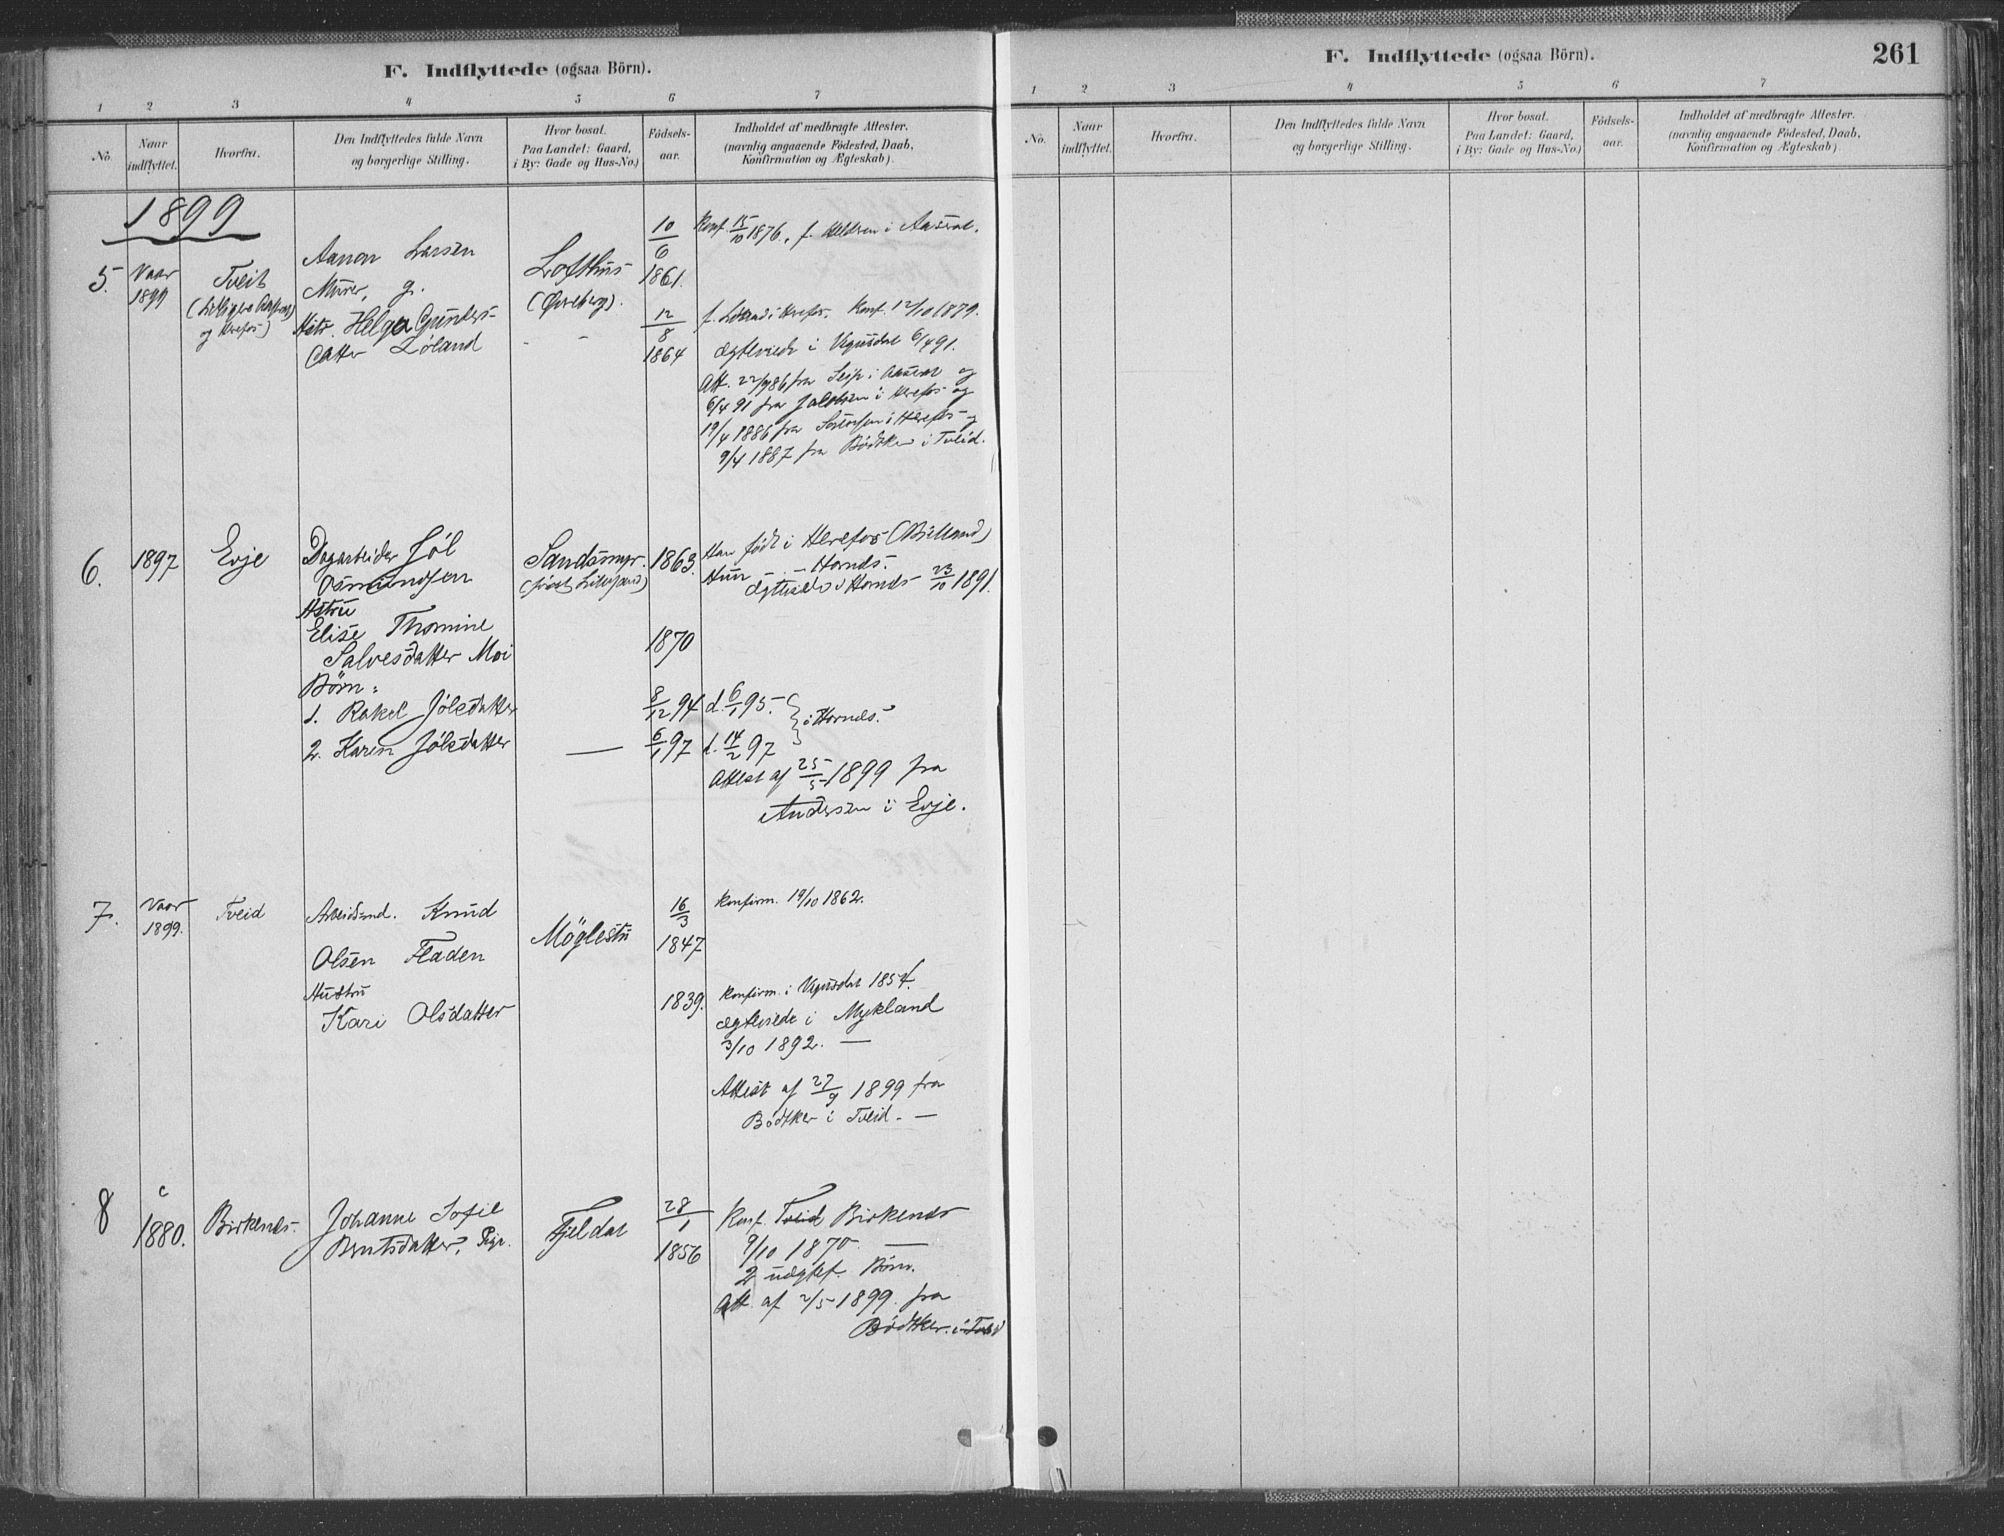 F. Indflyttede (ogsaa Börn).
1 2 3 4 5 6 7
No. Naar indflyttet. Hvorfra. Den Indflyttedes fulde Navn og borgerlige Stilling. Hvor bosat. Paa Landet: Gaard, i By: Gade og Hus-No.) Födsels-aar. Indholdet af medbragte Attester. (navnlig angaaende Födested, Daab, Konfirmation og Ægteskab).
1899
5. Vaar 1899 Tveit
og Herefos)
Aanon Larsen
Murer, g.
Hstr. Helga Gunders-
datter Löland
Lofthus
(Övreberg).
10/6 1861.
12/8 1864
Konf. 15/10 1876, f. i Aaseral.
f. i Herefos. Konf. 12/10 1879.
ægteviede i Vegusdal 6/4 91.
Att. 22/9 86 fra Seip i Aaseral og
6/4 91 fra Jacobsen i Herefos og
19/4 1886 fra i Herefos og
9/4 1887 fra Bödtker i Tveid.
6. 1897 Evje
Dagarbeider Jöl
Osmundsen
Hstru
Elise Thomine
Salvesdatter Moi
Börn:
1. Rakel Jölsdatter
2. Karen Jölsdatter
Sandsmyr.
(höst Lillesand)
1863.
1870
8/12 94
— 6/1 97
Han född i Herefos (Birkeland)
Hun - . - Hornes.
ægteviede i Hornes 23/10 1891.
d. 6/1 95.
d. 14/2 97
} i Hornes.
Attest af 25/5 1899 fra
Andersen i Evje.
7. Vaar 1899. Tveid
Arbeidsmd. Knud
Olsen Fladen
Hustru
Kari Olsdatter
Möglestu
16/3 1847
1839.
Konfirm. 19/10 1862.
Konfirm. i Vegusdal 1854.
ægteviede i Mykland
3/10 1892. —
Attest af 27/9 1899 fra
Bödtker i Tveid. —
8 c 1880. Birkenes
Johanne Sofie
Berntsdatter, Pige.
Fjeldal
28/1 1856
Konf. Tveid Birkenes
9/10 1870. —
2 uægtef. Börn.
Att. af 2/5 1899 fra
Bödtker i Tveid
F. Indflyttede (ogsaa Börn).
261
1 2 3 4 5 6 7
No. Naar indflyttet. Hvorfra. Den Indflyttedes fulde Navn og borgerlige Stilling. Hvor bosat. Paa Landet: Gaard, i By: Gade og Hus-No.) Födsels-aar. Indholdet af medbragte Attester. (navnlig angaaende Födested, Daab, Konfirmation og Ægteskab).